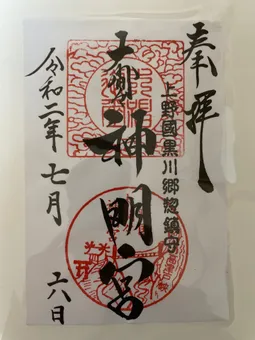 奉拝
上野國黒川郷惣鎮守
神明宮
令和二年七月
六日